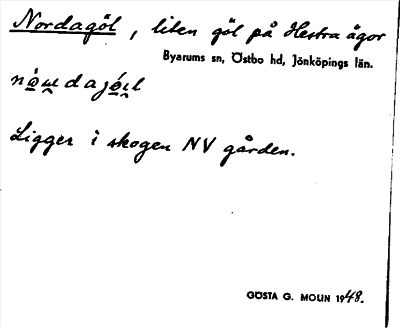 Nordagöl, liten göl på Hestra ägor
Byarums sn, Östbo hd, Jönköpings län.
Ligger i skogen NV gården.
GÖSTA G. MOLIN 1948.